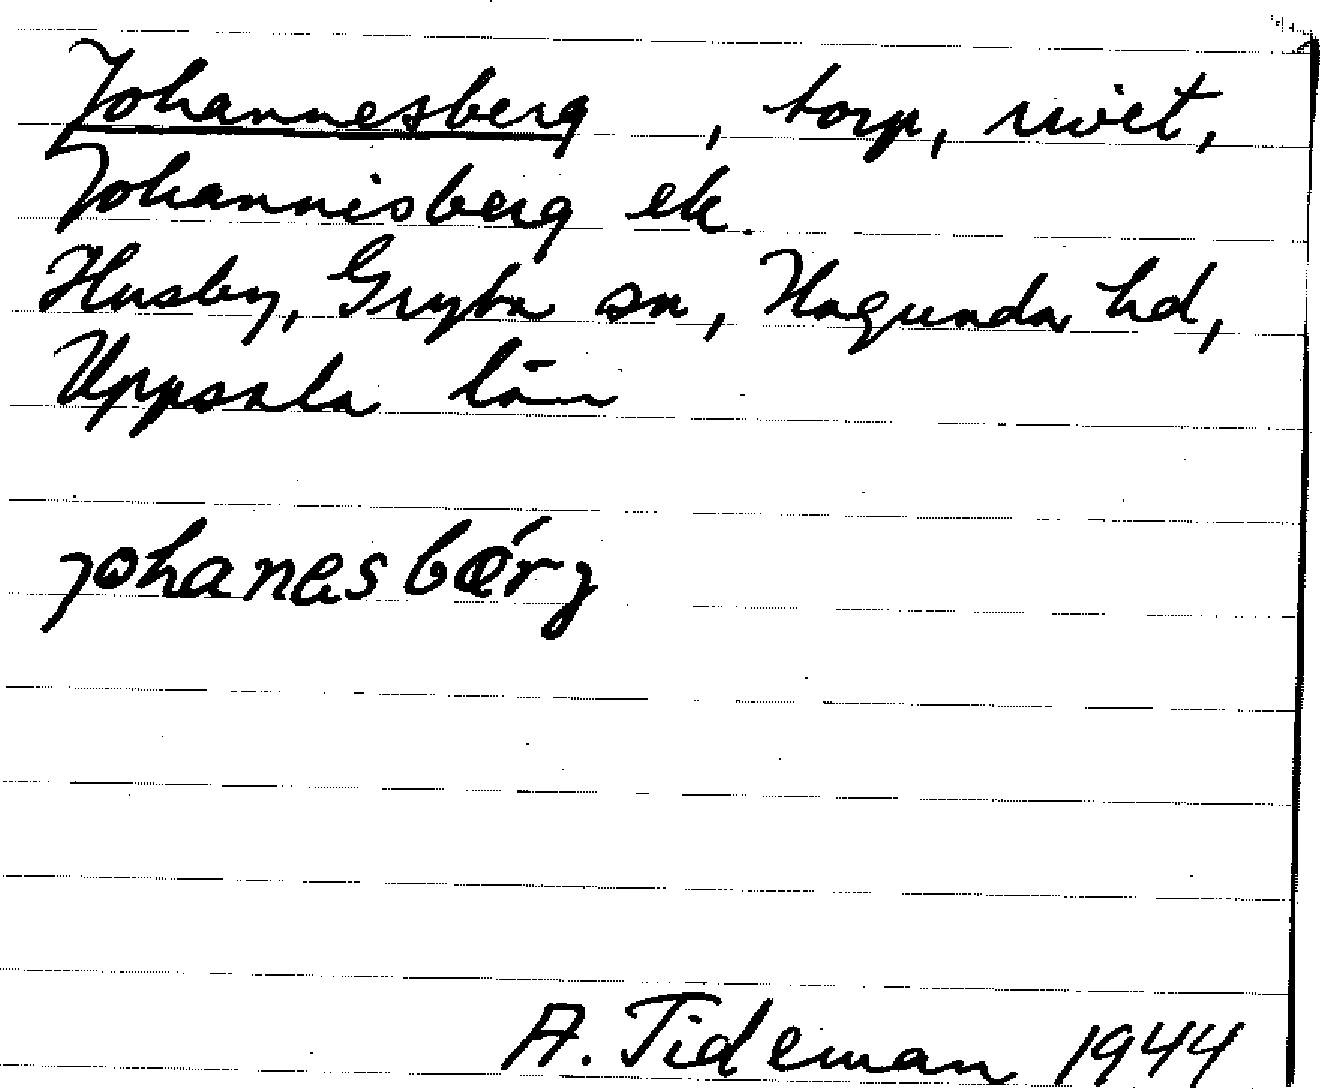 Johannesberg, torp, rivet,
Johannisberg ek.
Husby, Gryta sn, Hagunda hd,
Uppsala län
johanesbærj
A. Tideman 1944